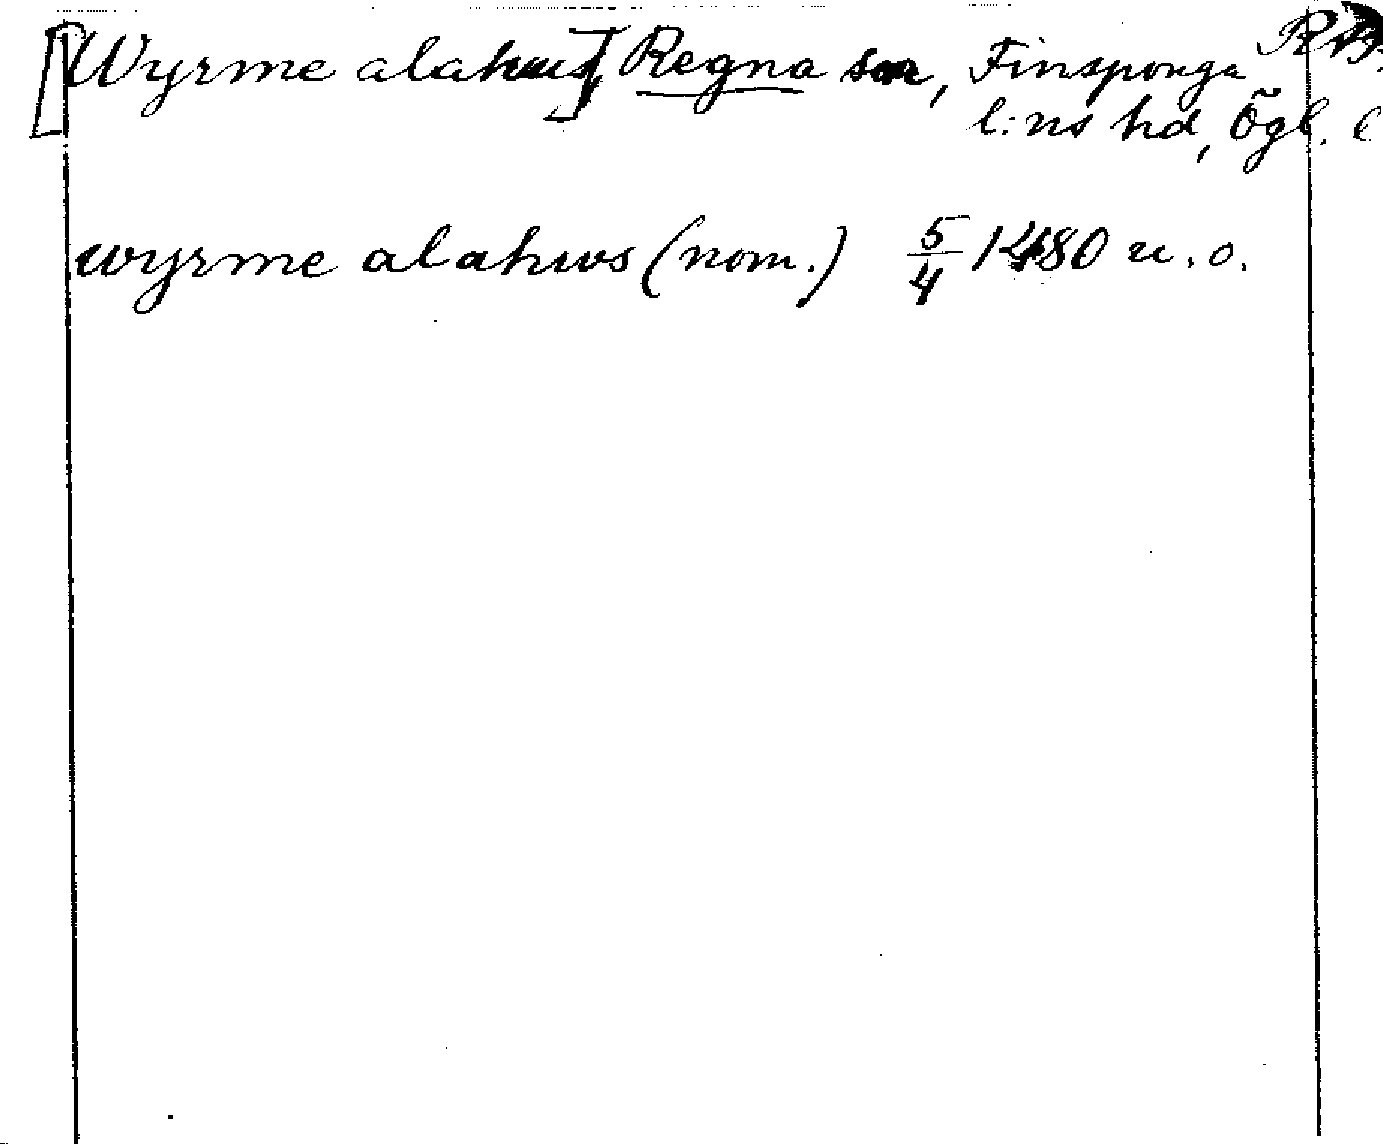 [Wyrme alahus] Regna sn, Finsponga
l:ns hd, Ögl.
wyrme alahws (nom.) 5/4 1480 u.o.